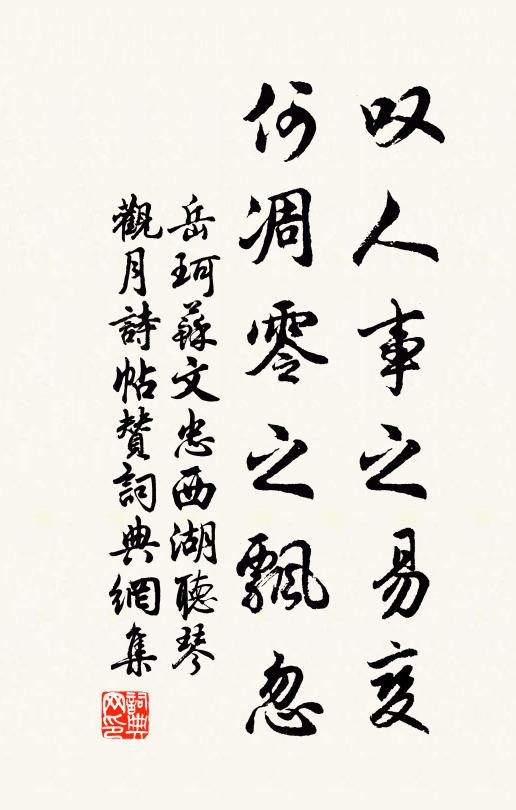 叹人事之易变
何凋零之飘忽
岳珂蘇文忠西湖聽琴
觀月詩帖贊詞典網集
詞典
网印